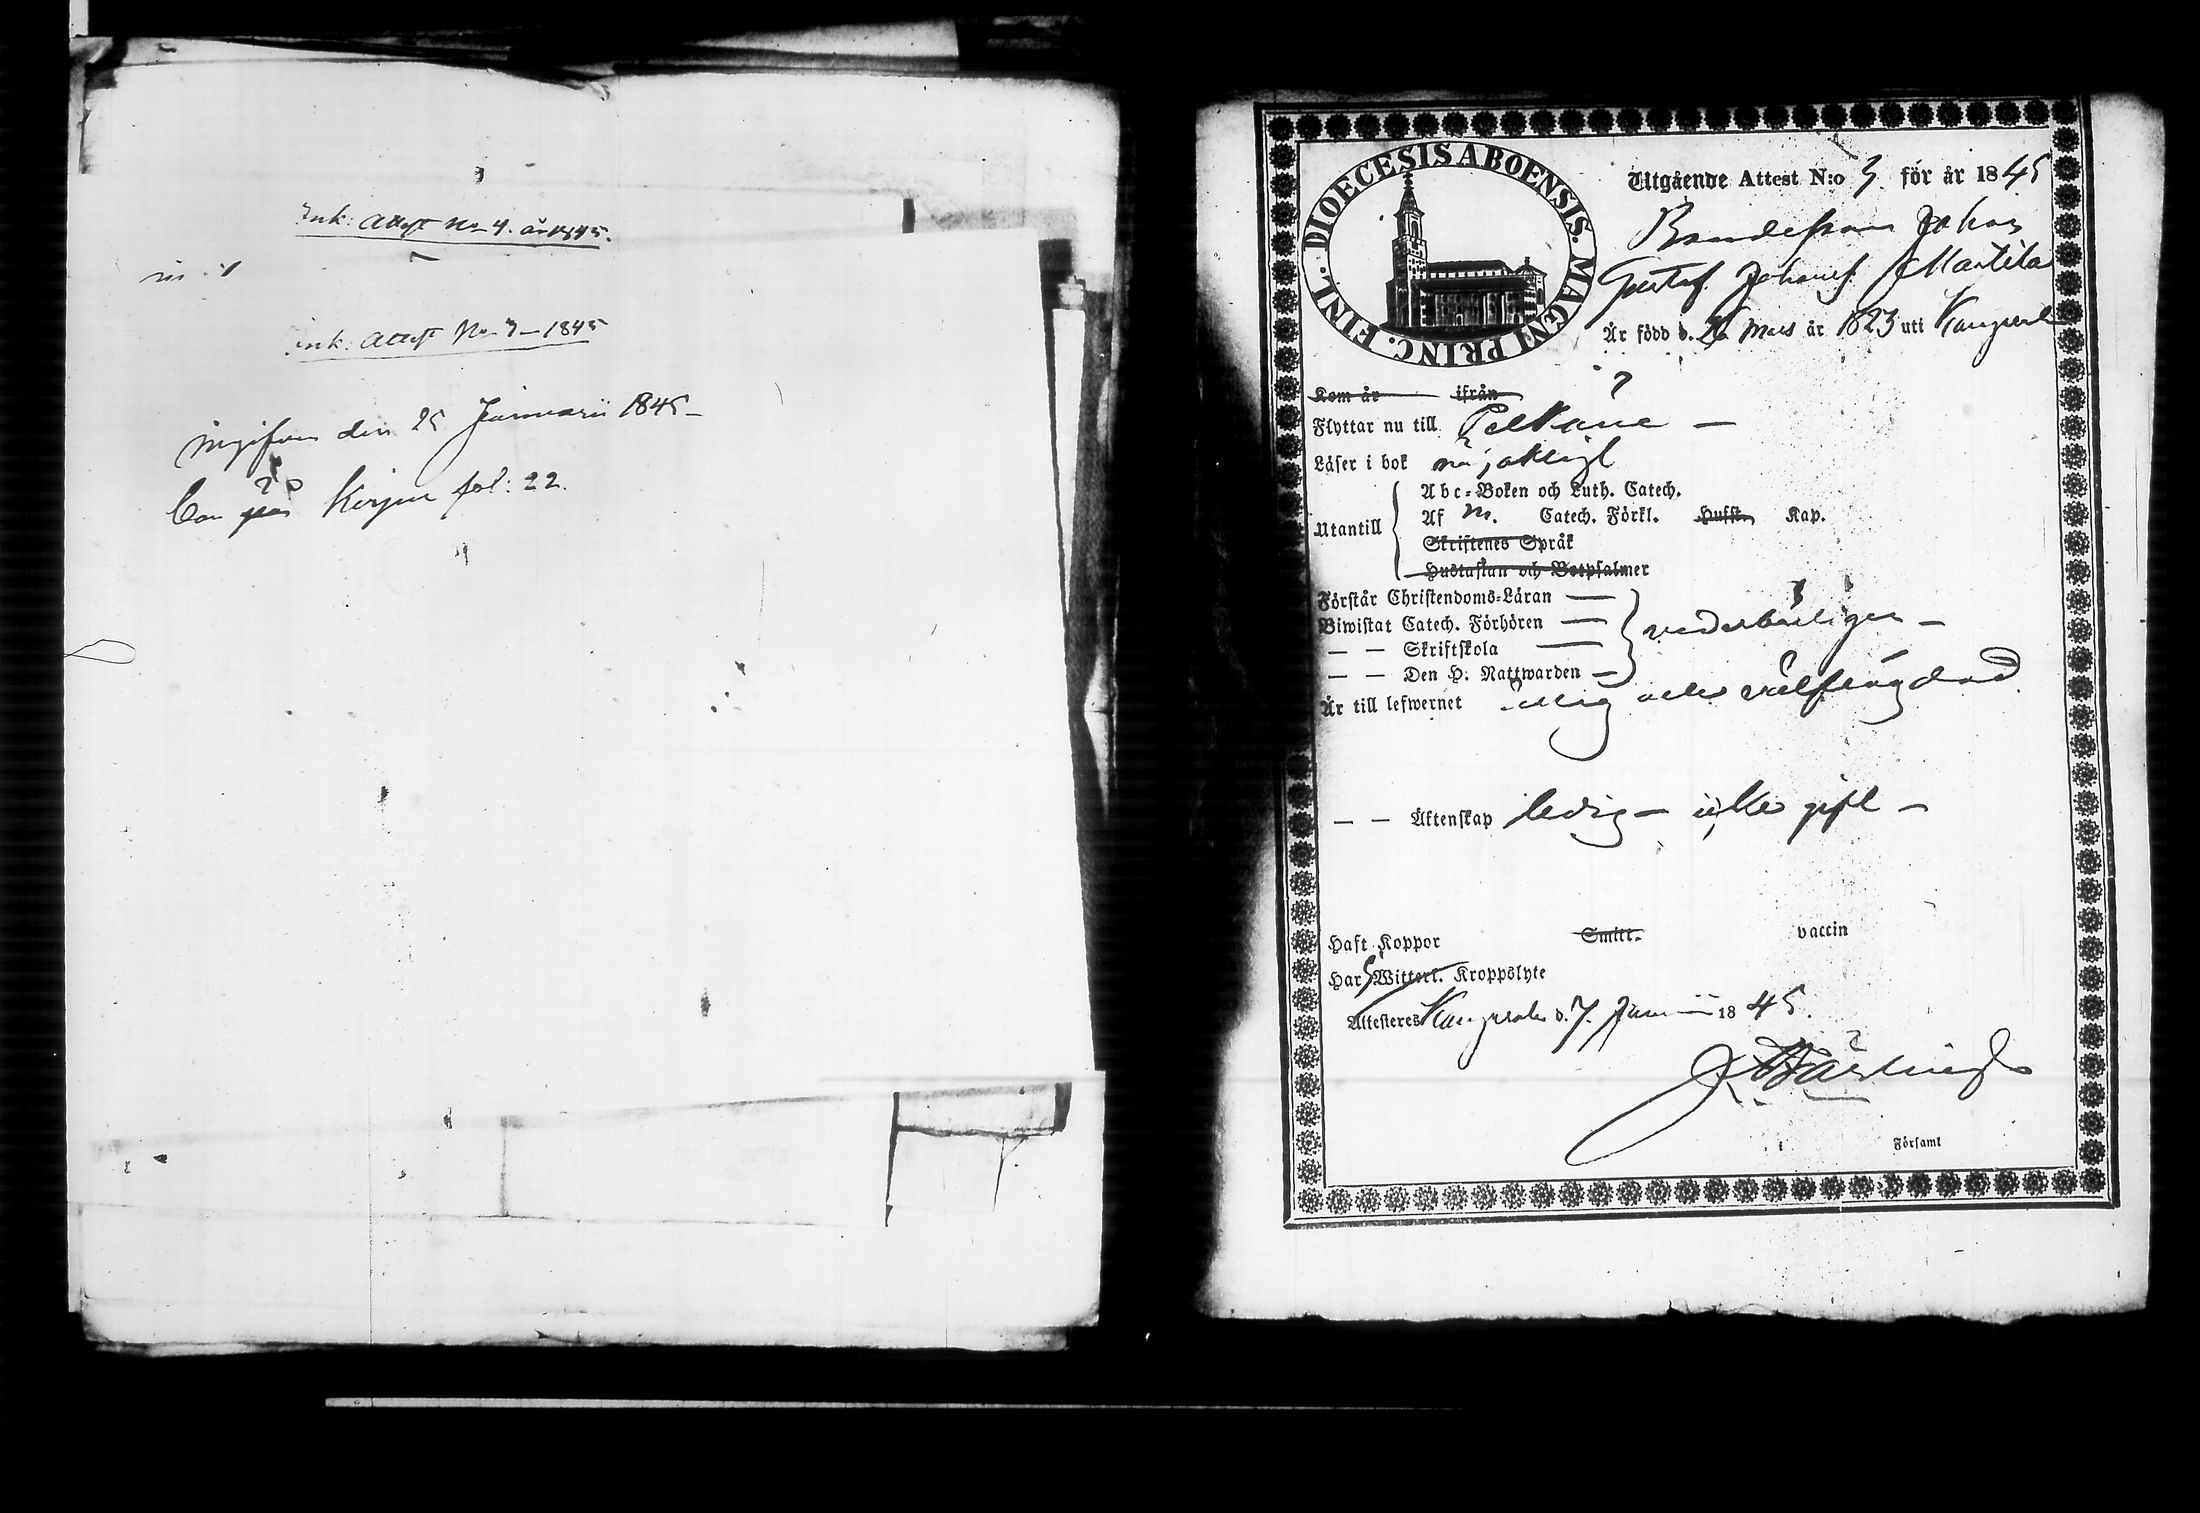 Ink: Attest No 4. år 1845.
Ink: Attest No 3 – 1845
ingifven den 25 Januarii 1845 –
Bor på Kirjais fol: 22.
DIOECESIS ABOENSIS. MAGNI PRINC. FINL.
Utgående Attest N:o 3 för år 1845
Bondesson Johan
Gustaf Johansf. Marttila
År född d. 26 Mars år 1823 uti Kangasala
Kom år ifrån
Flyttar nu till Pelkäne –
Läser i bok nöjaktigt
Abc-Boken och Luth. Catech.
Utantill Af m. Catech. Förkl. Husst. Kap.
Skriftenes Språk
Hustaflan och Botpsalmer
Förstår Christendoms-Läran
Biwistat Catech. Förhören vederbörligen –
— — Skriftskola
— — Den H: Nattwarden
Är till lefwernet ärlig och välfrägdad
— — Äktenskap ledig – icke gift –
Haft Koppor Smitt. vaccin
Har Witterl. Kroppslyte
Attesteres Kangasala d. 7. Januarii 1845.
Församl